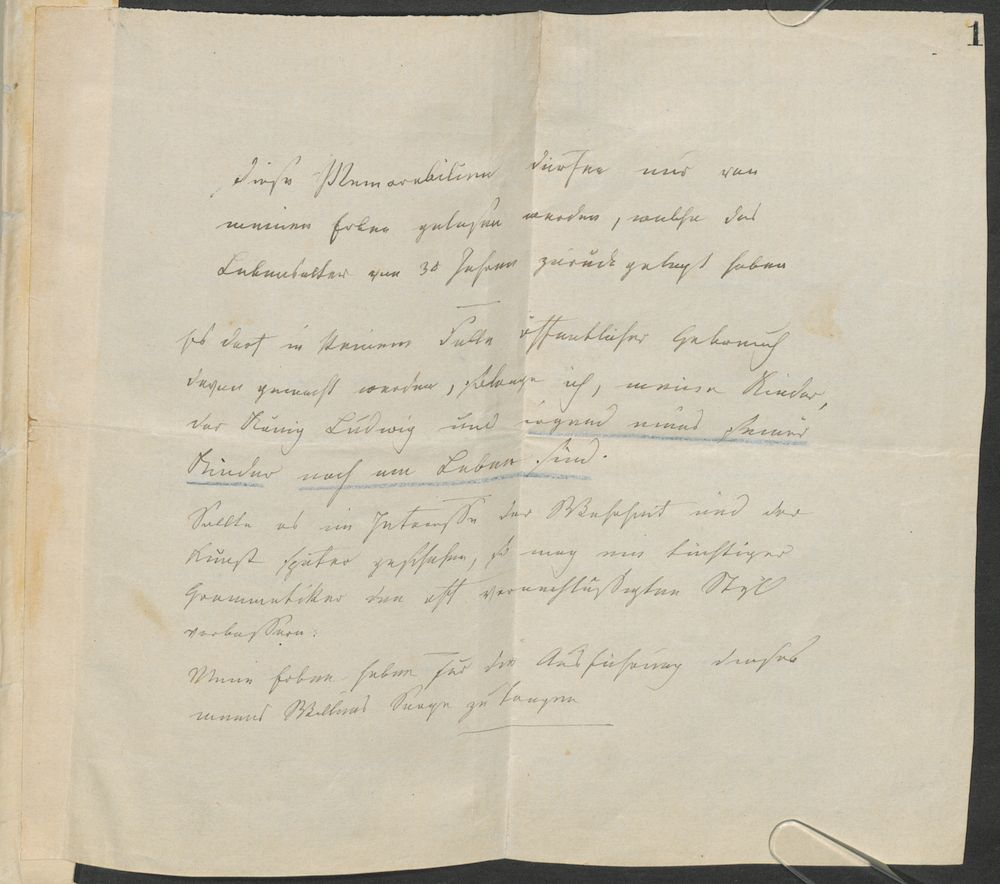 1
Diese Memorabilien dürfen nur von
meinen Erben gelesen werden, welche das
Lebensalter von 30 Jahren zurück gelegt haben
Es darf in keinem Falle öffentlicher Gebrauch
davon gemacht werden, solange ich, meine Kinder,
der König Ludwig und irgend eines seiner
Kinder noch am Leben sind.
Sollte es im Interesse der Wahrheit und der
Kunst später geschehen, so mag ein tüchtiger
Grammatiker den oft vernachlässigten Styl
verbessern.
Meine Erben haben für die Ausführung dieses
meines Willens Sorge zu tragen